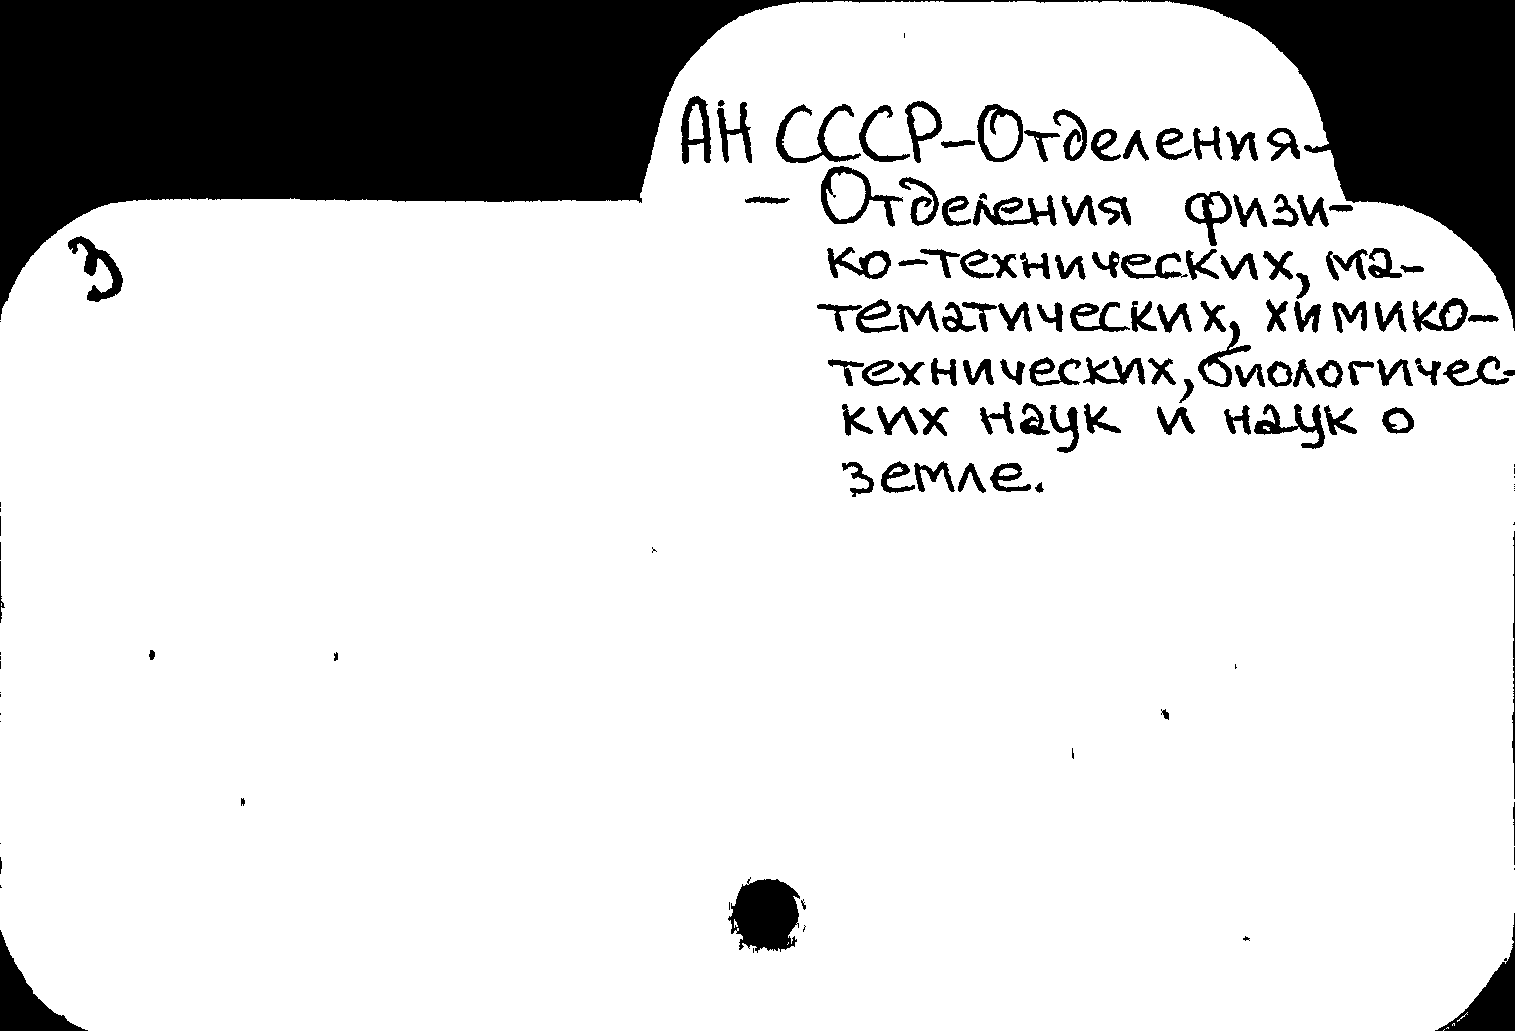 АН СССР-Отделения-
- Отделения физи-
ко-технических, ма-
тематических, химико-
технических, биологичес-
ких наук и наук о
земле.
З